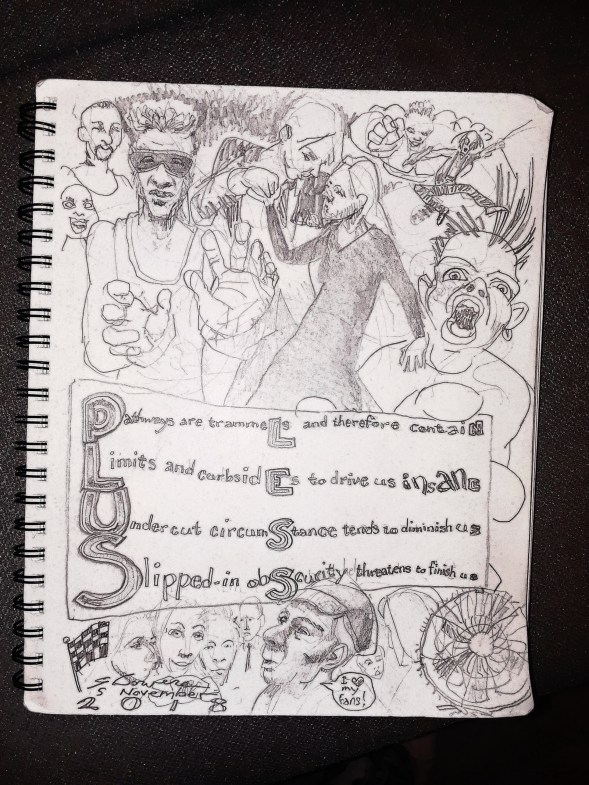 Pathways are trammeLs and therefore contaiN
Limits and curbsidEs to drive us insANE
Undercut circumStance tends to diminish us
Slipped-in obScurity threatens to finish us
5 November
2018
I
my
fans!